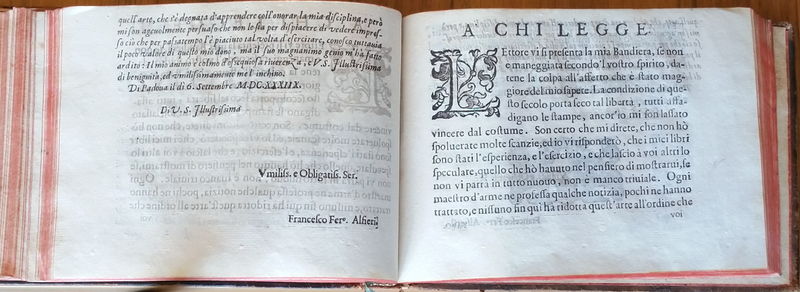 quest'arte, che s'è degnata d'aprendere coll'onorar la mia disciplina, e però
mi son agevolmente persuaso che non lo sia per dispiacere di vedere impres-
so ciò che per passatempo l'è piaciuto tal volta d'esercitare, conosco tuttavia
il poco valore di questo mio dono, ma il suo magnanimo genio m'hà fatto
ardito: Il mio animo è colmo d'ossequiosa riverenza, e V.S. Illustrissima
di benignità, ed vmilissimamente me l'inchino.
Di Padoua il di 6. Settembre M.DC.XXXIIX.
Di V. S. Illustrissima
Vmiliss. e Obligatiss. Ser.
Francesco Fer°. Alfierij
A CHI LEGGE.
LEttore vi si presenta la mia Bandiera, se non
è maneggiata secondo'l vostro spirito, da-
tene la colpa all'affetto che è stato mag-
giore del mio sapere. La condizione di que-
sto secolo porta seco tal libertà, tutti affa-
digano le stampe, ancor'io mi son lassato
vincere dal costume. Son certo che mi direte, che non hò
spoluerate molte scanzie, ed io vi risponderò, che i miei libri
sono stati l'esperienza, e l'esercizio, e che lascio à voi altri lo
speculare, quello che hò hauuto nel pensiero di mostrarui, se
non vi parrà in tutto nuouo, non è manco triuiale. Ogni
maestro d'arme ne professa qualche notizia, pochi ne hanno
trattato, e nissuno fin qui hà ridotta quest'arte all'ordine che
voi